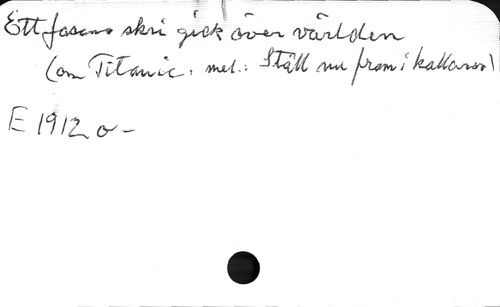 Ett fasans skri gick över världen
(om Titanic. mel.: Ställ nu fram i kallaron)
E 1912 o -